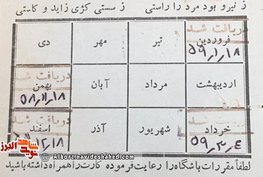 ز نیرو بود مرد را راستی ز سستی کژی زاید و کاستی
دریافت شد
فروردین تیر مهر دی
۵۹/۱/۱۸
اردیبهشت مرداد آبان بهمن
دریافت شد
۵۸/۱۱/۱۸
خرداد شهریور آذر اسفند
۵۹/۳/۴
لطفاً مقررات باشگاه را رعایت فرموده کارت را همراه داشته باشید